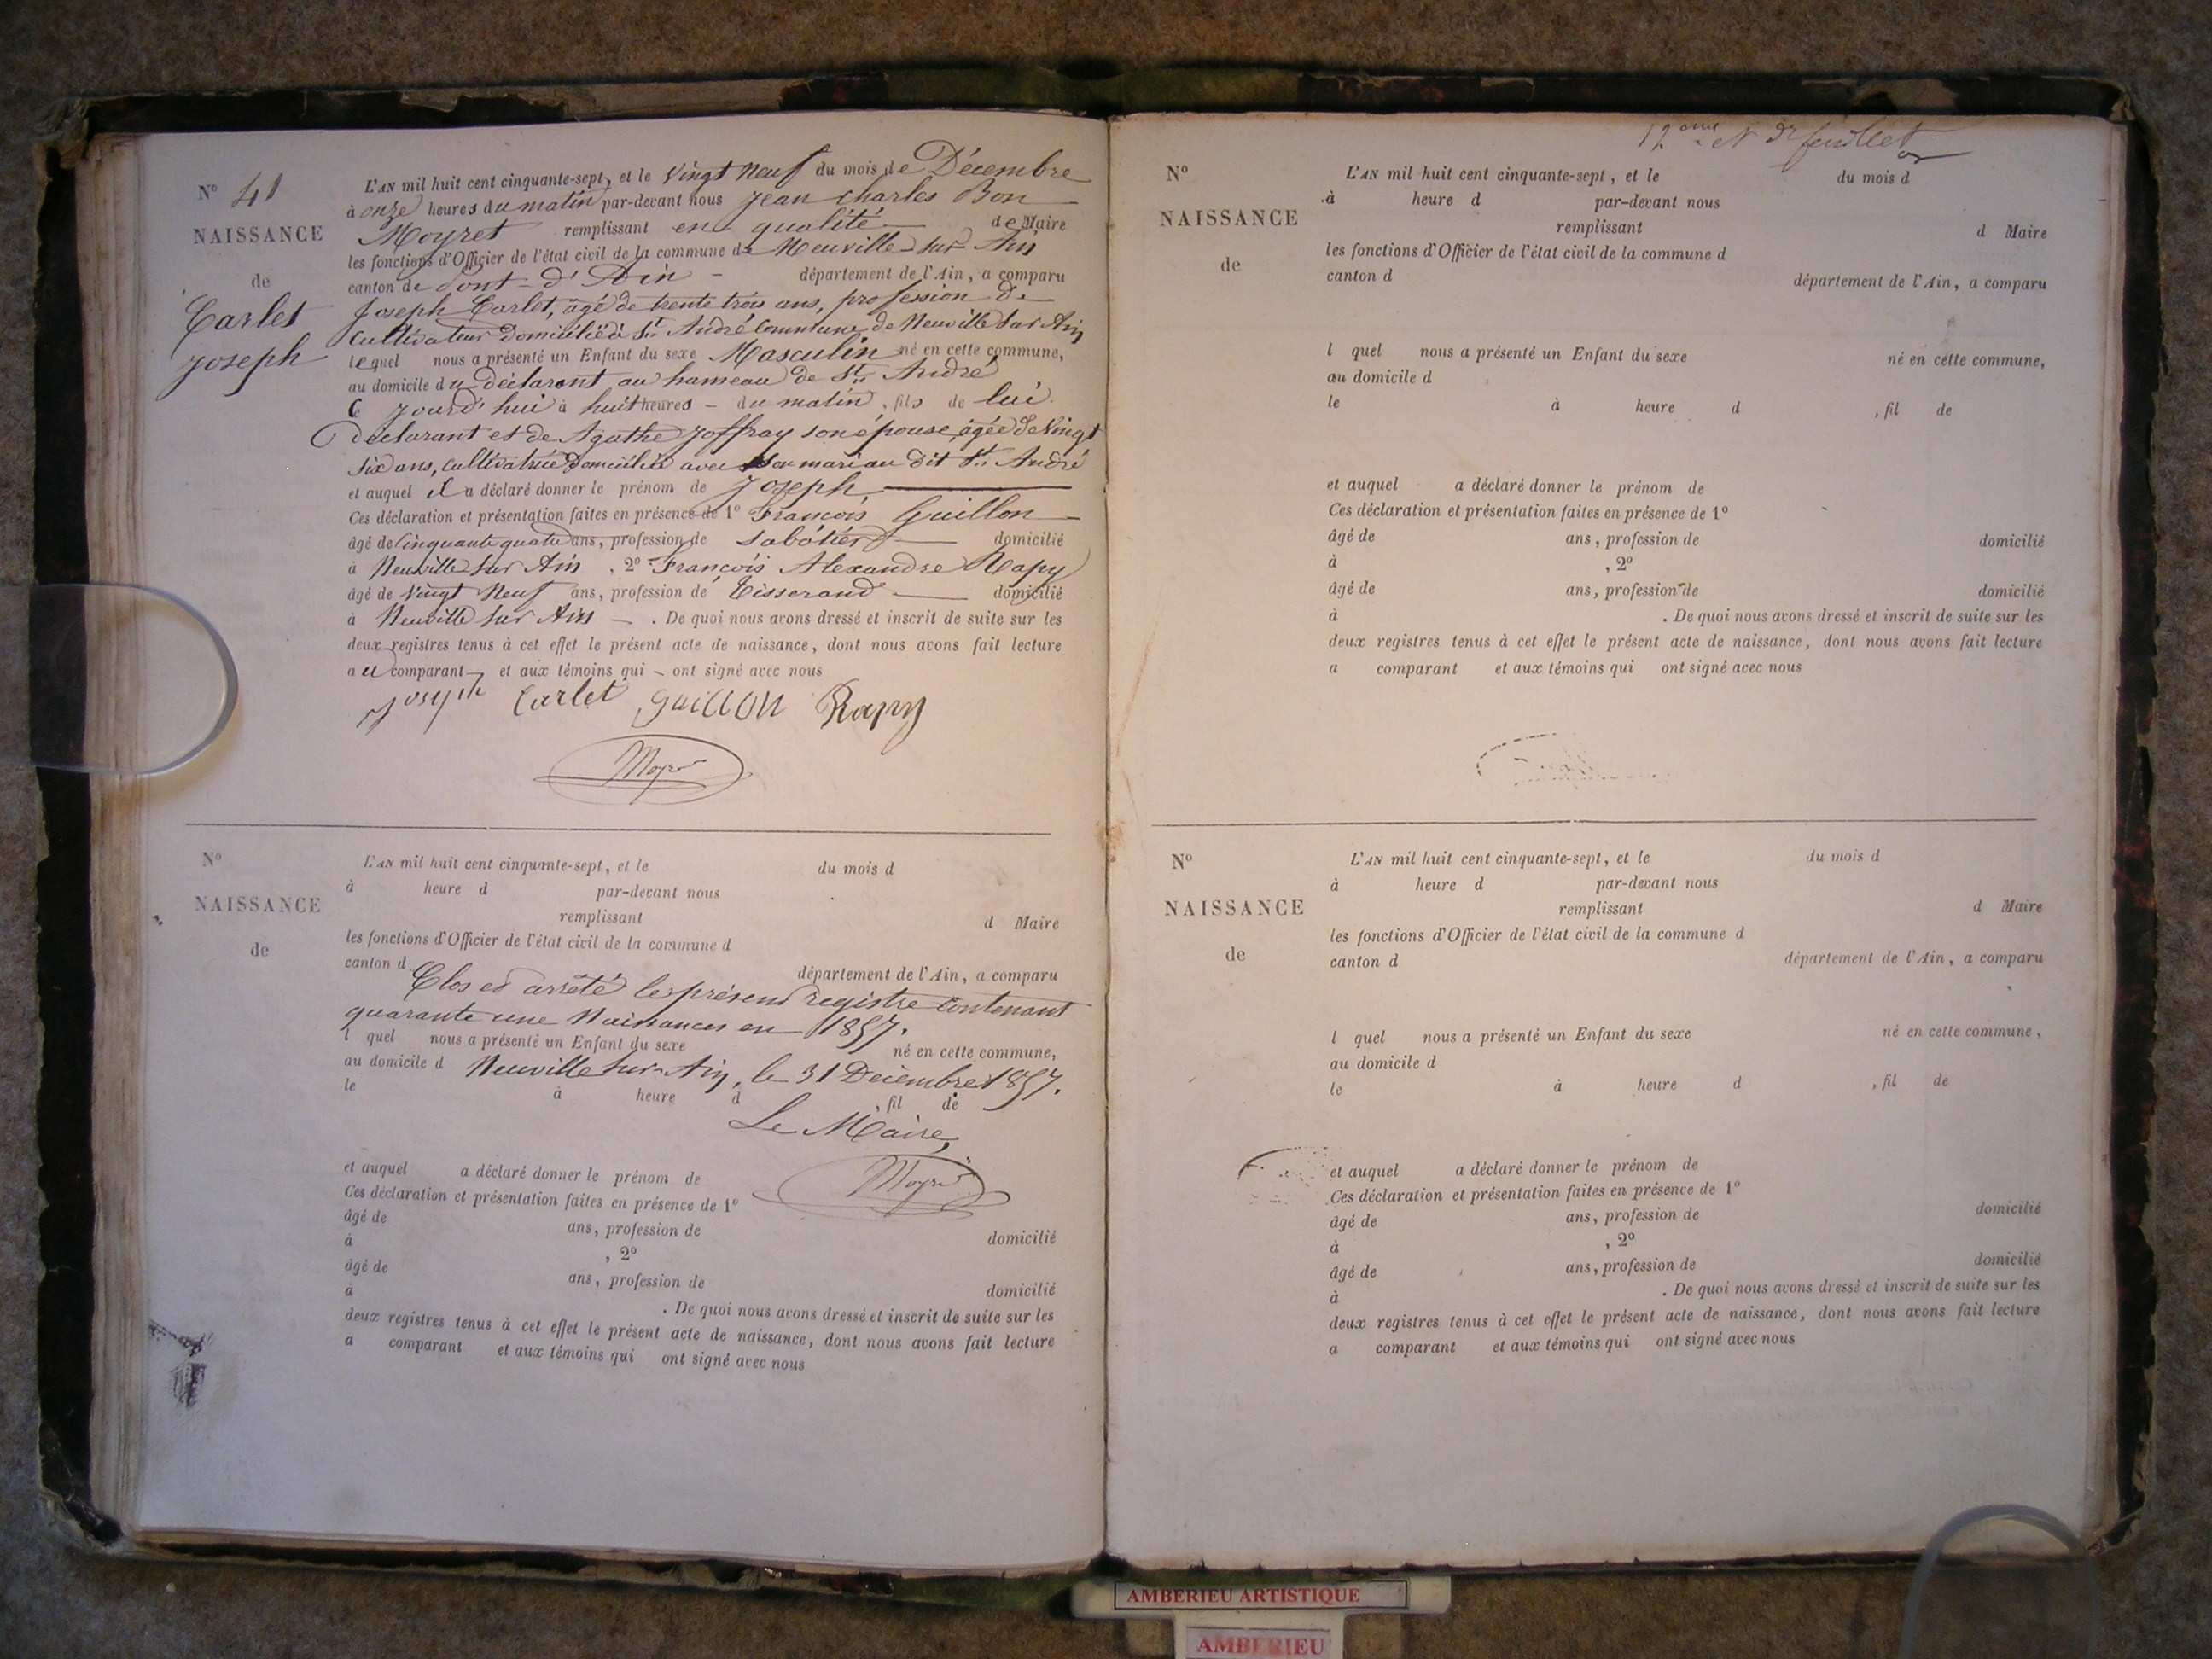 N° 41
NAISSANCE
de
Carlet
Joseph
L'AN mil huit cent cinquante-sept, et le Vingt Neuf du mois de Décembre
à onze heures du matin par-devant nous Jean Charles Bon
Moyret remplissant en qualité de Maire
les fonctions d'Officier de l'état civil de la commune de Neuville-sur-Ain
canton de Pont-d'Ain - département de l'Ain, a comparu
Joseph Carlet, âgé de trente trois ans, profession de
Cultivateur domicilié à St. André Commune de Neuville sur Ain
lequel nous a présenté un Enfant du sexe Masculin né en cette commune,
au domicile du déclarant au hameau de St. André
le jourd'hui à huit heures - du matin, fils de lui
déclarant et de Agathe Joffray son épouse, âgée de Vingt
six ans, cultivatrice domiciliée avec son mari au dit St. André
et auquel il a déclaré donner le prénom de Joseph
Ces déclaration et présentation faites en présence de 1° François Guillon
âgé de Cinquante quatre ans, profession de Sabotier domicilié
à Neuville sur Ain, 2° François Alexandre Rapy
âgé de Vingt Neuf ans, profession de Tisserand domicilié
à Neuville sur Ain - . De quoi nous avons dressé et inscrit de suite sur les
deux registres tenus à cet effet le présent acte de naissance, dont nous avons fait lecture
au comparant et aux témoins qui - ont signé avec nous
Joseph Carlet Guillon Rapy
Moyret
N°
NAISSANCE
de
L'AN mil huit cent cinquante-sept, et le du mois d
à heure d par-devant nous
remplissant d Maire
les fonctions d'Officier de l'état civil de la commune d
canton d département de l'Ain, a comparu
Clos et arrêté le présent registre contenant
quarante une Naissances en 1857.
l quel nous a présenté un Enfant du sexe né en cette commune,
au domicile d Neuville sur Ain, le 31 Décembre 1857.
le à heure d , fil de
Le Maire,
et auquel a déclaré donner le prénom de
Moyret
Ces déclaration et présentation faites en présence de 1°
âgé de ans, profession de domicilié
à , 2°
âgé de ans, profession de domicilié
à . De quoi nous avons dressé et inscrit de suite sur les
deux registres tenus à cet effet le présent acte de naissance, dont nous avons fait lecture
a comparant et aux témoins qui ont signé avec nous
12eme et dr feuillet
N°
NAISSANCE
de
L'AN mil huit cent cinquante-sept, et le du mois d
à heure d par-devant nous
remplissant d Maire
les fonctions d'Officier de l'état civil de la commune d
canton d département de l'Ain, a comparu
l quel nous a présenté un Enfant du sexe né en cette commune,
au domicile d
le à heure d , fil de
et auquel a déclaré donner le prénom de
Ces déclaration et présentation faites en présence de 1°
âgé de ans, profession de domicilié
à , 2°
âgé de ans, profession de domicilié
à . De quoi nous avons dressé et inscrit de suite sur les
deux registres tenus à cet effet le présent acte de naissance, dont nous avons fait lecture
a comparant et aux témoins qui ont signé avec nous
N°
NAISSANCE
de
L'AN mil huit cent cinquante-sept, et le du mois d
à heure d par-devant nous
remplissant d Maire
les fonctions d'Officier de l'état civil de la commune d
canton d département de l'Ain, a comparu
l quel nous a présenté un Enfant du sexe né en cette commune,
au domicile d
le à heure d , fil de
et auquel a déclaré donner le prénom de
Ces déclaration et présentation faites en présence de 1°
âgé de ans, profession de domicilié
à , 2°
âgé de ans, profession de domicilié
à . De quoi nous avons dressé et inscrit de suite sur les
deux registres tenus à cet effet le présent acte de naissance, dont nous avons fait lecture
a comparant et aux témoins qui ont signé avec nous
AMBERIEU ARTISTIQUE
AMBERIEU